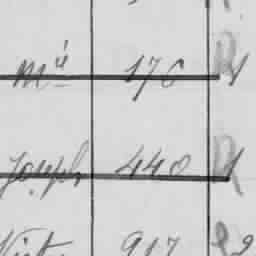 Mie 176 R 1
Joseph 440 R 1
Vict. 917 R 2